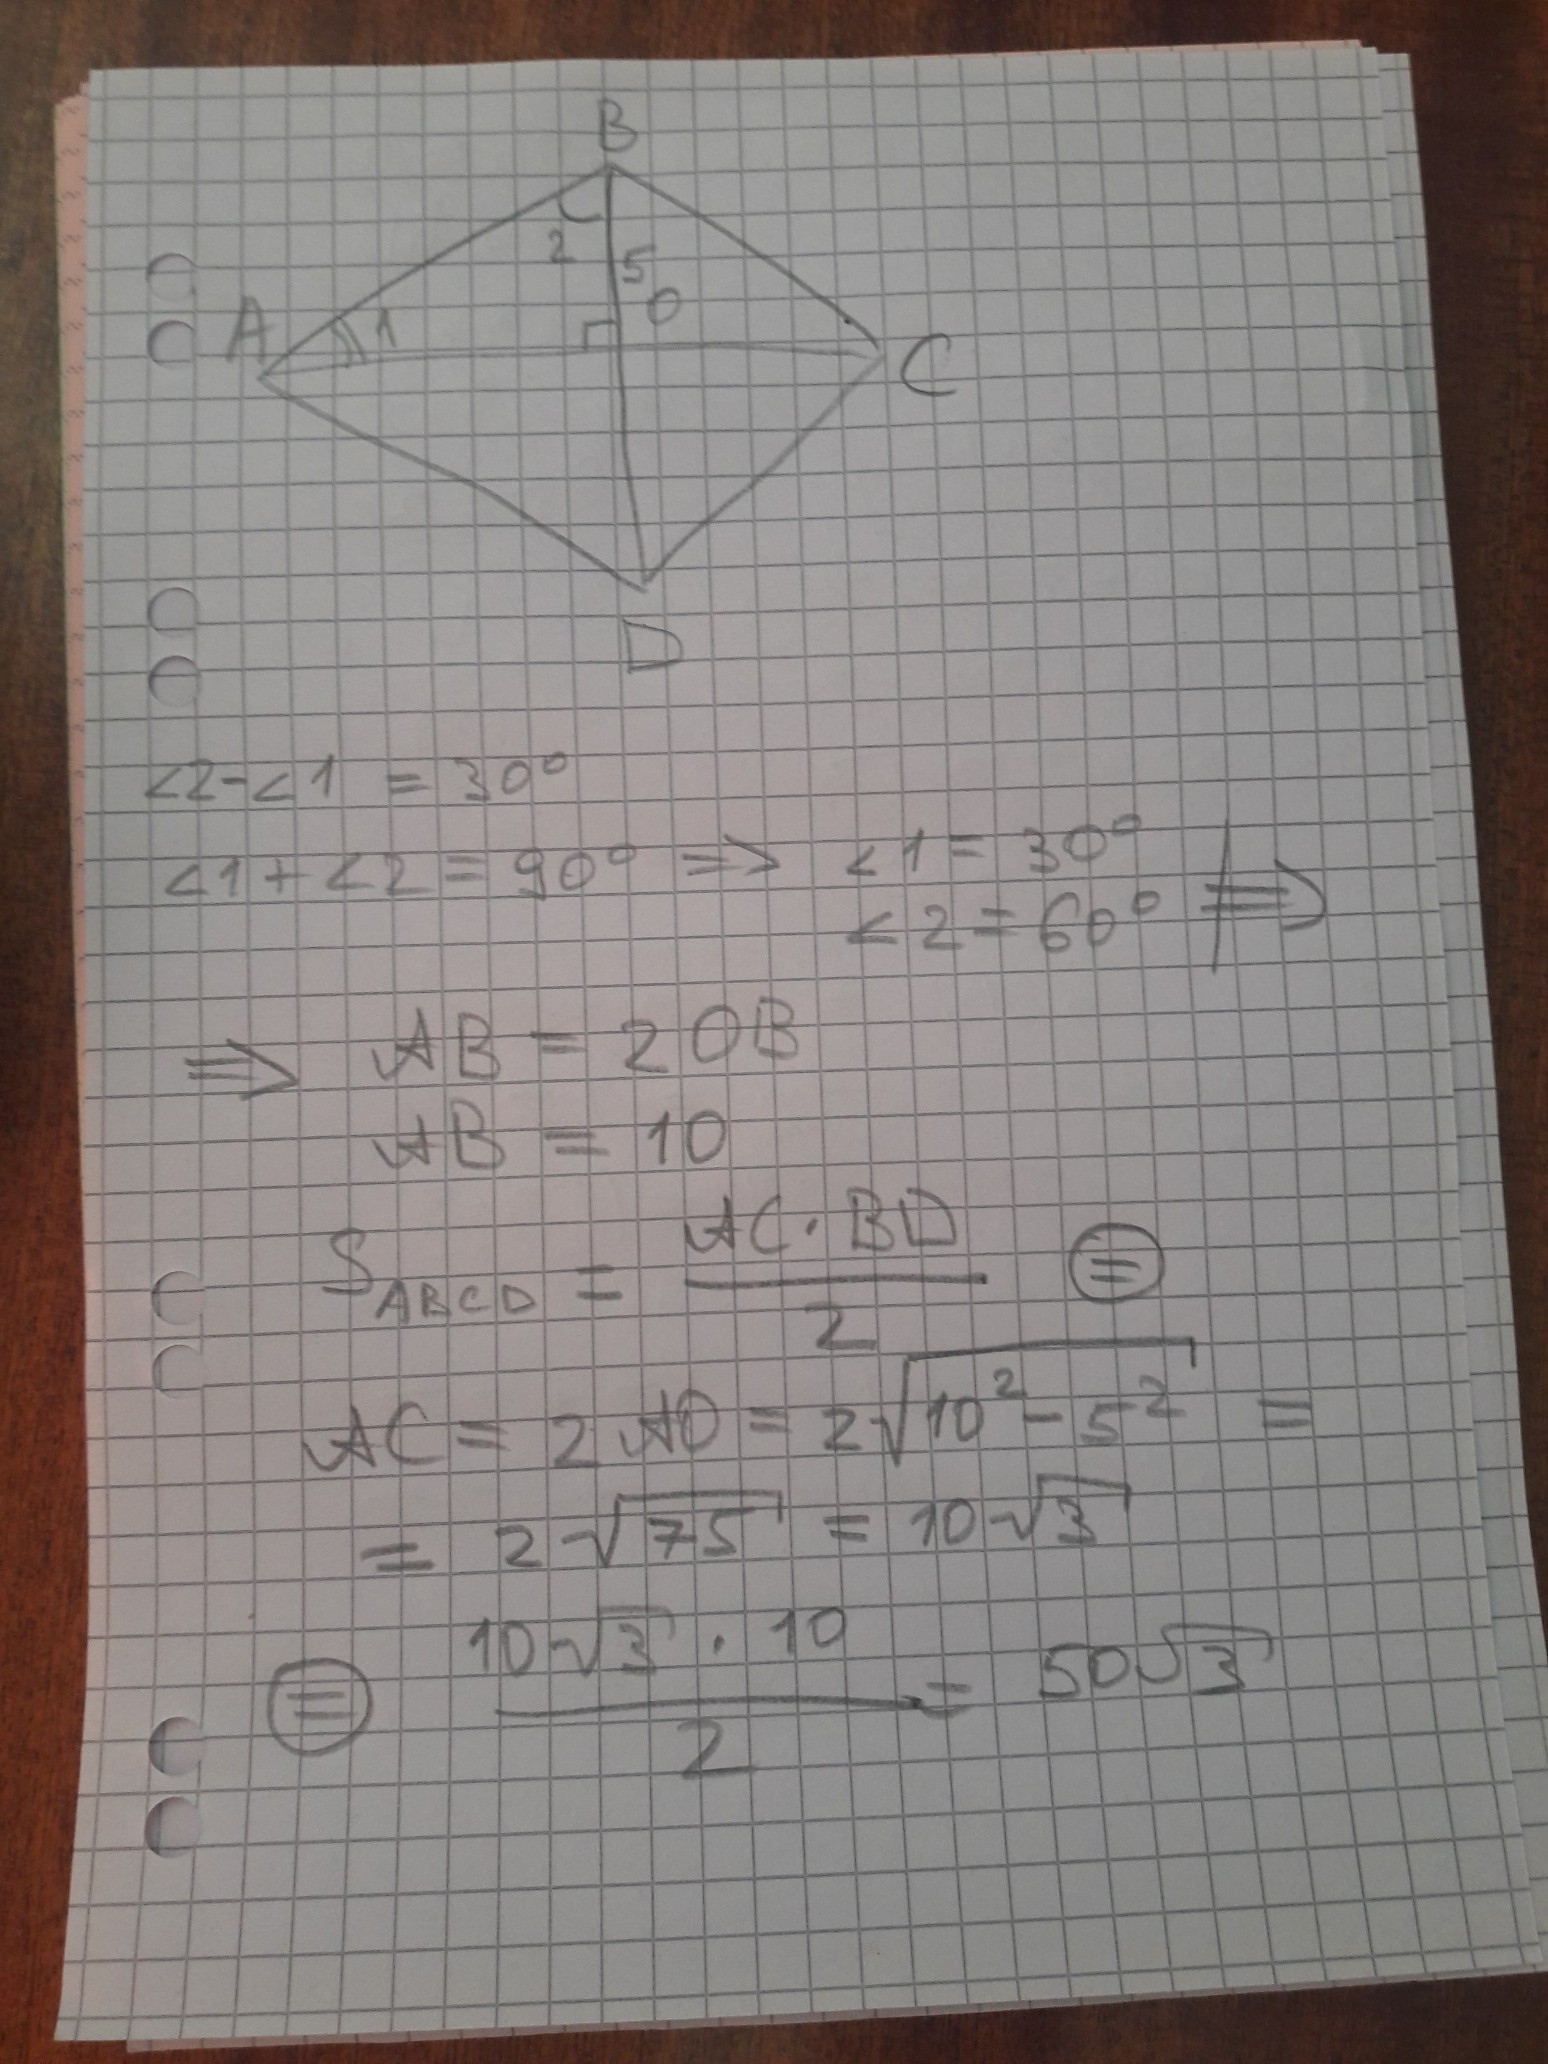 B
2 5
O
A 1
C
D
∠2-∠1 = 30°
∠1+∠2 = 90° => ∠1 = 30°
∠2 = 60° =>
=> AB = 2OB
AB = 10
S_ABCD = AC·BD/2 (=)
AC = 2AO = 2√(10²-5²) =
= 2√75 = 10√3
(=) 10√3 · 10/2 = 50√3